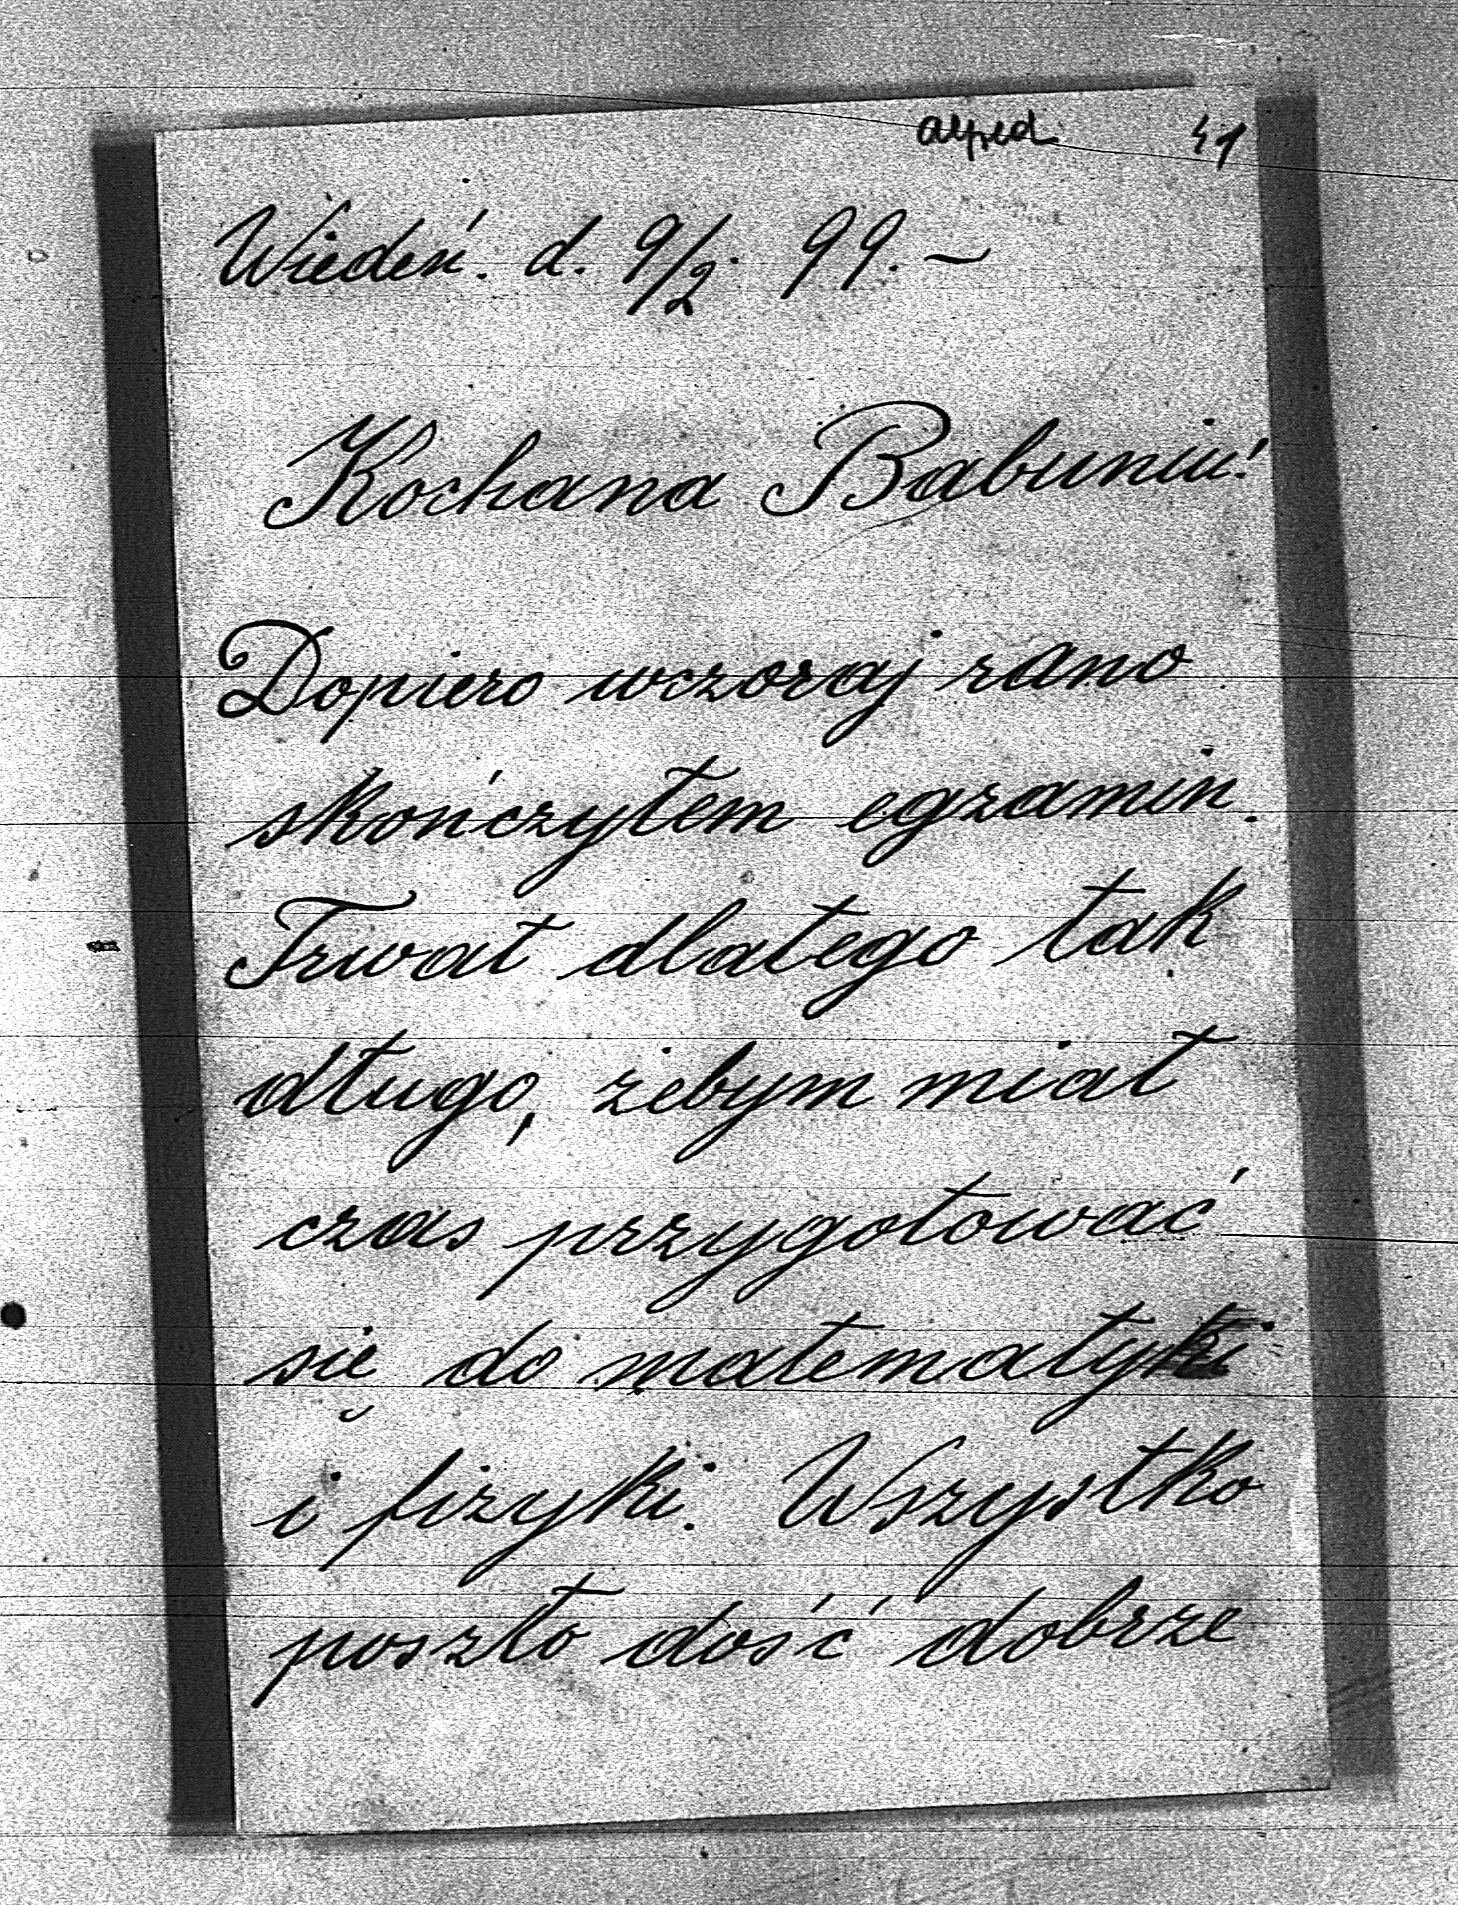 Alfred 41
Wiedeń. d. 9/2. 99. –
Kochana Babuniu!
Dopiero wczoraj rano
skończyłem egzamin.
Trwał dlatego tak
długo, żebym miał
czas przygotować
się do matematyki
i fizyki. Wszystko
poszło dość dobrze